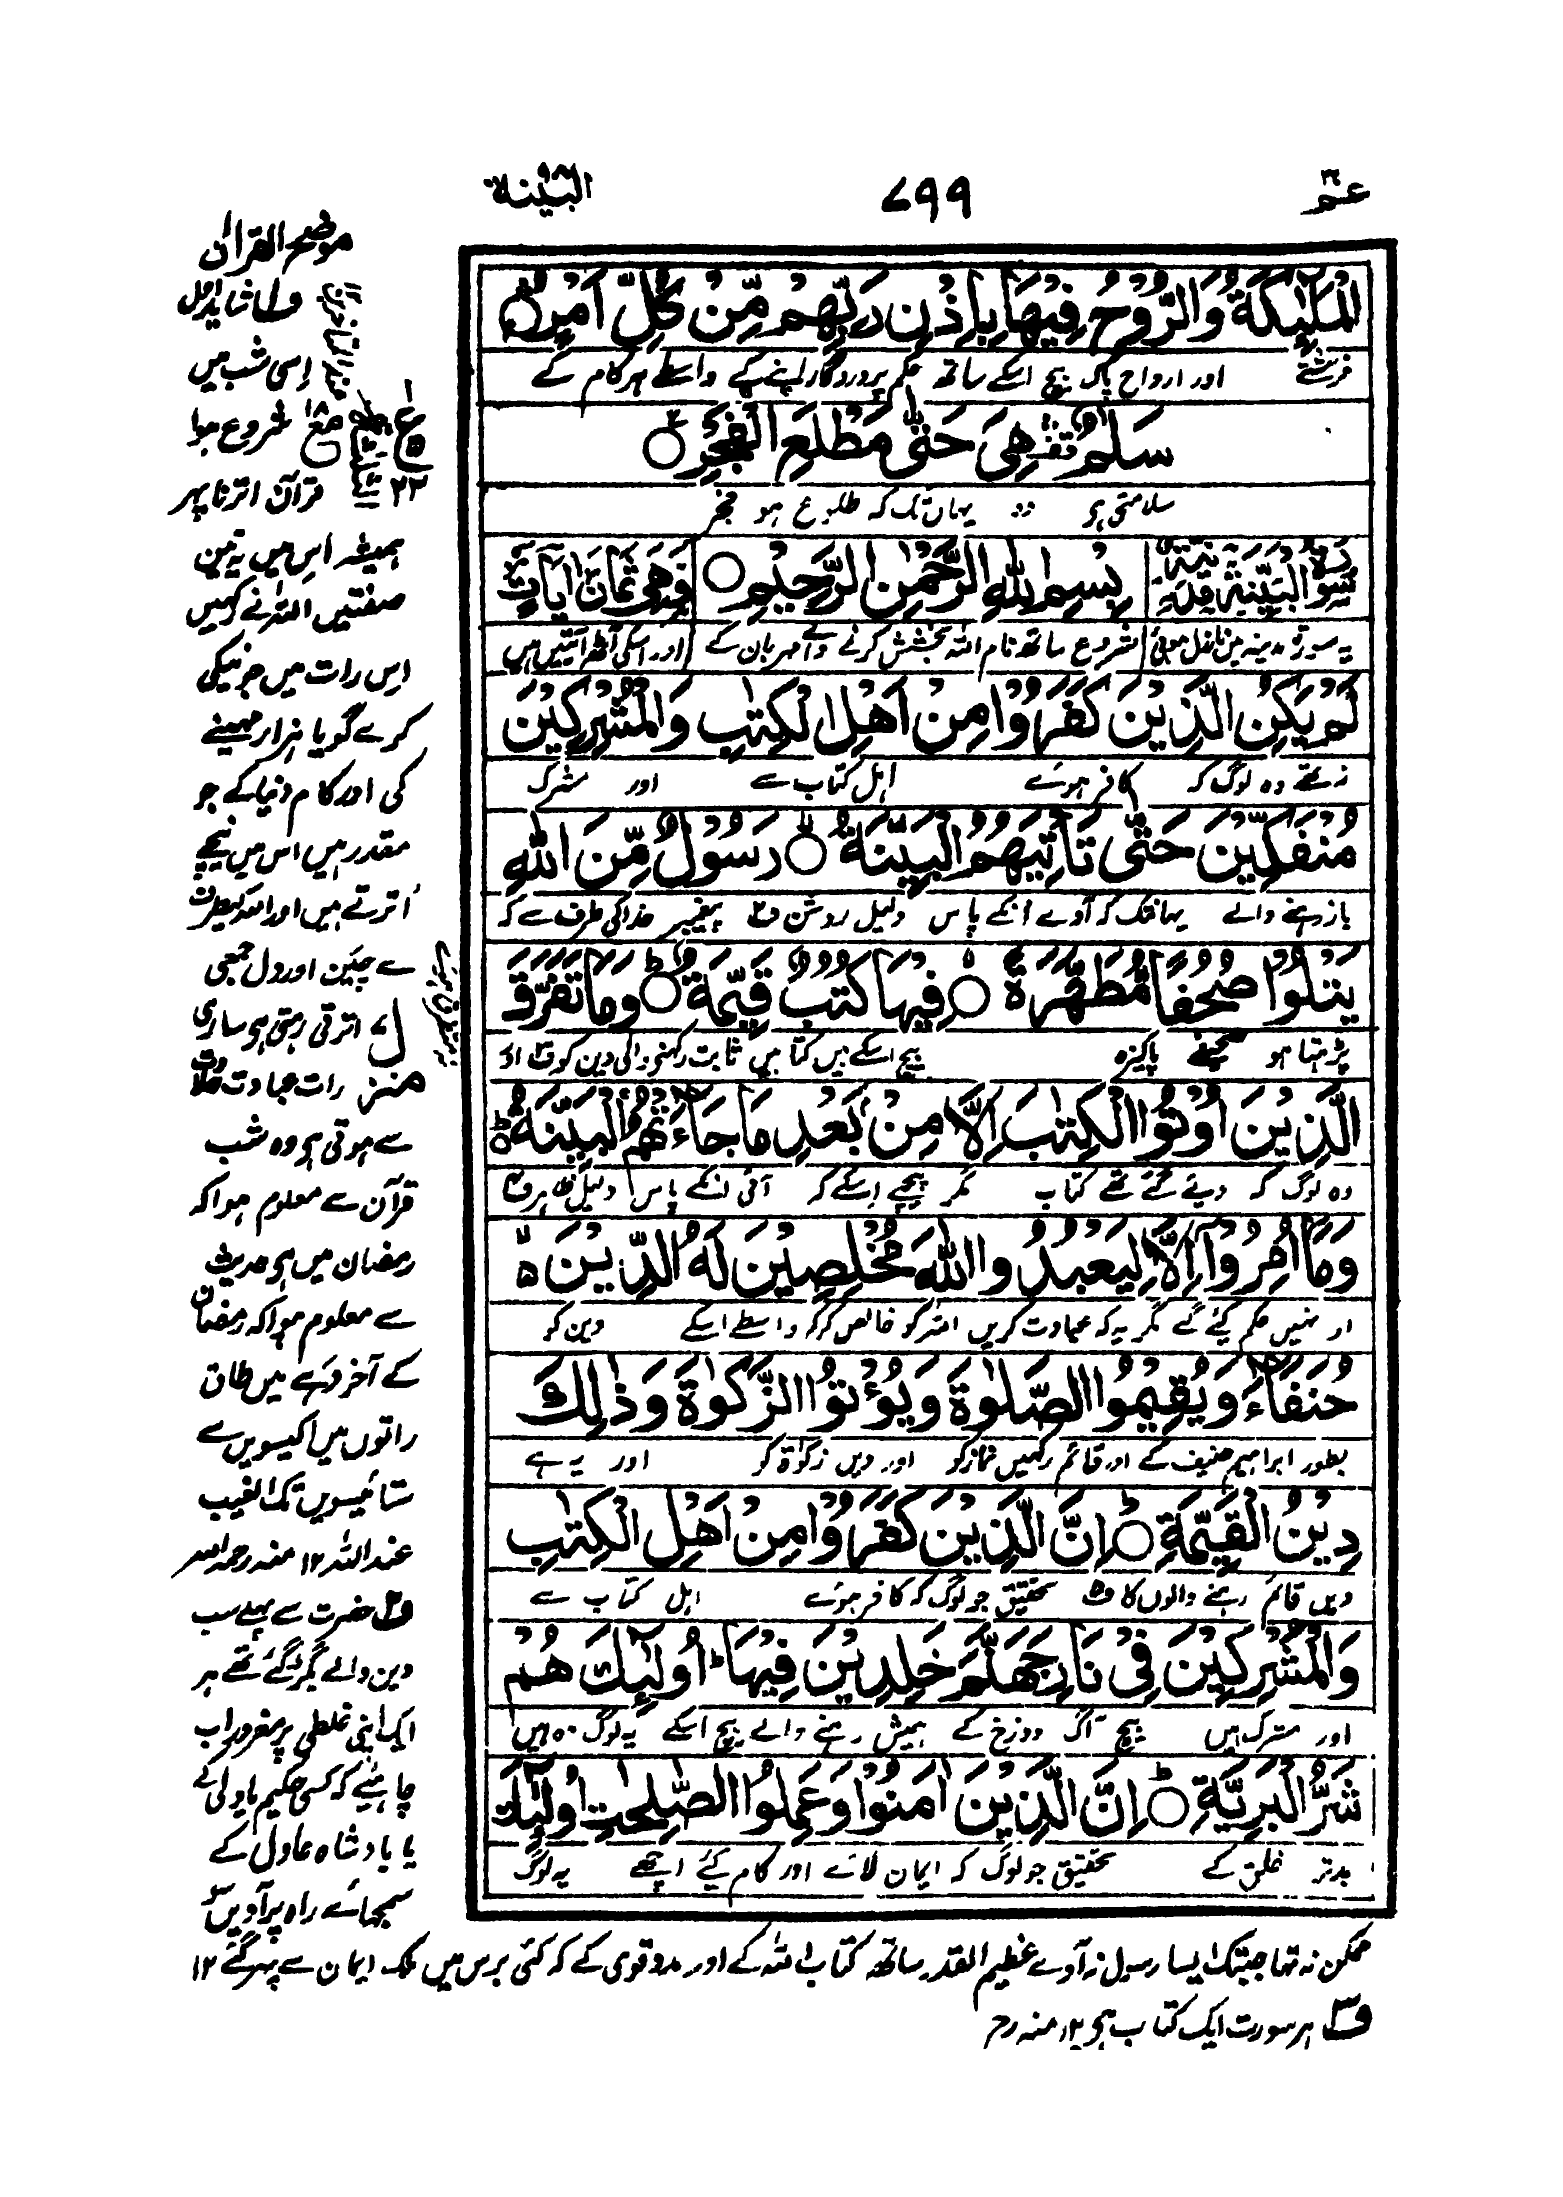 عم ۳۰
۷۹۹
البینة ۹۸
الْمَلٰٓئِكَةُ وَالرُّوْحُ فِيْهَا بِاِذْنِ رَبِّهِمْ مِّنْ كُلِّ اَمْرٍ
فرشتے اور ارواح پاک بیچ اسکے ساتھ حکم پروردگار اپنے کے واسطے ہر کام کے
سَلٰمٌ هِيَ حَتّٰى مَطْلَعِ الْفَجْرِ
سلامتی ہی وہ یہاں تک کہ طلوع ہو فجر
سورة البينة مدنية بِسْمِ اللّٰهِ الرَّحْمٰنِ الرَّحِيْمِ وَهِيَ ثَمَانُ اٰيَاتٍ
یہ سورۃ مدینہ میں نازل ہوئی شروع ساتھ نام اللہ بخشش کرنے والے مہربان کے اور اسکی آٹھ آیتیں ہیں
لَمْ يَكُنِ الَّذِيْنَ كَفَرُوْا مِنْ اَهْلِ الْكِتٰبِ وَالْمُشْرِكِيْنَ
نہ تھے وہ لوگ کہ کافر ہوئے اہل کتاب سے اور مشرک
مُنْفَكِّيْنَ حَتّٰى تَاْتِيَهُمُ الْبَيِّنَةُ رَسُوْلٌ مِّنَ اللّٰهِ
باز رہنے والے یہانتک کہ آوے انکے پاس دلیل روشن ف۲ پیغمبر خدا کی طرف سے کہ
يَتْلُوْا صُحُفًا مُّطَهَّرَةً فِيْهَا كُتُبٌ قَيِّمَةٌ وَمَا تَفَرَّقَ
پڑہتا ہو صحیفے پاکیزہ بیچ اسکے ہیں کتابیں ثابت رکھنے والی دین کو ف۳ اور
الَّذِيْنَ اُوْتُوا الْكِتٰبَ اِلَّا مِنْ بَعْدِ مَا جَآءَتْهُمُ الْبَيِّنَةُ
وہ لوگ کہ دیئے گئے تھے کتاب مگر پیچھے اسکے کہ آئی انکے پاس دلیل ظاہر
وَمَآ اُمِرُوْٓا اِلَّا لِيَعْبُدُوا اللّٰهَ مُخْلِصِيْنَ لَهُ الدِّيْنَ
اور نہیں حکم کیئے گئے مگر یہ کہ عبادت کریں اللہ کو خالص کر کر واسطے اسکے دین کو
حُنَفَآءَ وَيُقِيْمُوا الصَّلٰوةَ وَيُؤْتُوا الزَّكٰوةَ وَذٰلِكَ
بطور ابراہیم حنیف کے اور قائم رکھیں نماز کو اور دیں زکوٰۃ کو اور یہ ہے
دِيْنُ الْقَيِّمَةِ اِنَّ الَّذِيْنَ كَفَرُوْا مِنْ اَهْلِ الْكِتٰبِ
دین قائم رہنے والوں کا تحقیق جو لوگ کہ کافر ہوئے اہل کتاب سے
وَالْمُشْرِكِيْنَ فِيْ نَارِ جَهَنَّمَ خٰلِدِيْنَ فِيْهَا اُولٰٓئِكَ هُمْ
اور مشرک ہیں بیچ آگ دوزخ کے ہمیش رہنے والے بیچ اسکے یہ لوگ وہ ہیں
شَرُّ الْبَرِيَّةِ اِنَّ الَّذِيْنَ اٰمَنُوْا وَعَمِلُوا الصّٰلِحٰتِ اُولٰٓئِكَ
بدتر خلق کے تحقیق جو لوگ کہ ایمان لائے اور کام کیئے اچھے یہ لوگ
موضح القرآن
ف۱ شاید اول
اسی شب میں
شروع ہوا
قرآن اترنا پہر
ہمیشہ اس میں یہ تین
صفتیں اللہ نے رکہیں
اس رات میں جو نیکی
کرے گویا ہزار مہینے
کی اور کام دنیا کے جو
مقدر ہیں اس میں نیچے
اترتے ہیں اور اللہ کیطرف
سے چین اور دل جمعی
اترتی رہتی ہی ساری
رات عبادت حلاوت
منزل
سے ہوتی ہی وہ شب
قرآن سے معلوم ہوا کہ
رمضان میں ہی حدیث
سے معلوم ہوا کہ رمضان
کے آخر دہے میں طاق
راتوں میں اکیسویں سے
ستائیسویں تک الغیب
عند اللہ ۱۲ منہ رحمہ اللہ
ف۲ حضرت سے پہلے سب
دین والے بگڑ گئے تھے ہر
ایک اپنی غلطی پر مغرور اب
چاہیئے کہ کسی حکیم یا ولی کے
یا بادشاہ عادل کے
سمجہائے راہ پر آویں
ممکن نہ تہا جبتک ایسا رسول نہ آوے عظیم القدر ساتھ کتاب اللہ کے اور مدد قوی کے کہ کئی برس میں ملک ایمان سے بہر گئے ۱۲
ف۳ ہر سورت ایک کتاب ہی ۱۲ منہ رح